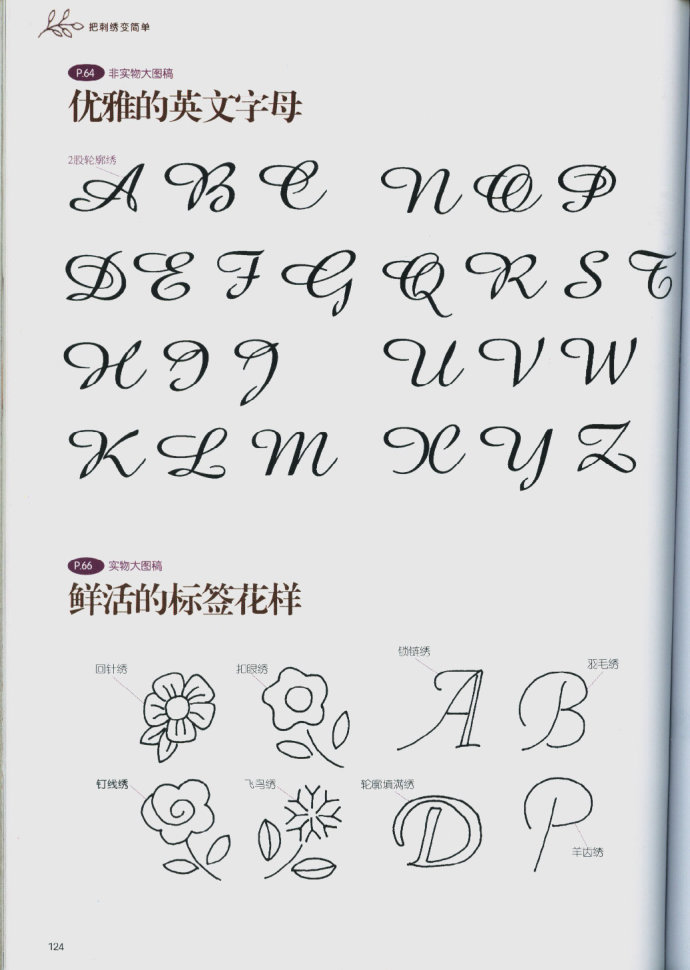 把刺绣变简单
P.64 非实物大图稿
优雅的英文字母
2股轮廓绣
A B C N O P
D E F G Q R S T
H I J U V W
K L M X Y Z
P.66 实物大图稿
鲜活的标签花样
回针绣 扣眼绣 锁链绣 羽毛绣
A B
钉线绣 飞鸟绣 轮廓填满绣
D P
羊齿绣
124